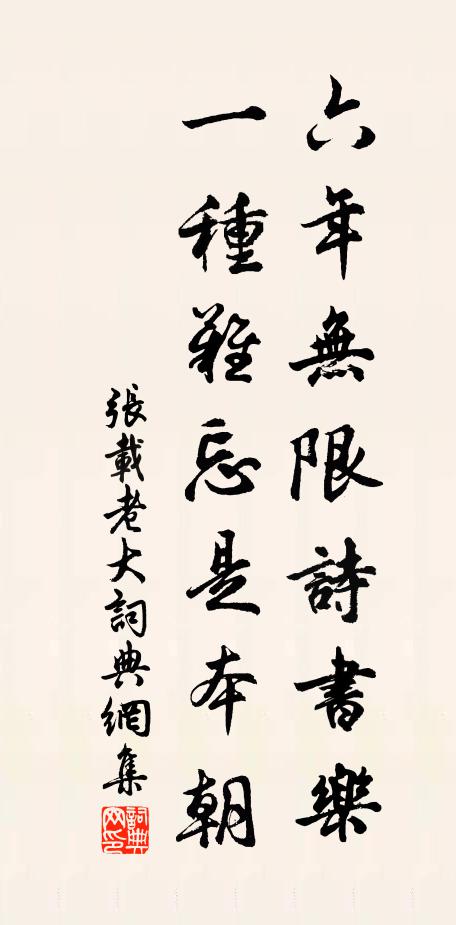 六年無限詩書樂
一種難忘是本朝
張載老大詞典網集
詞典网印